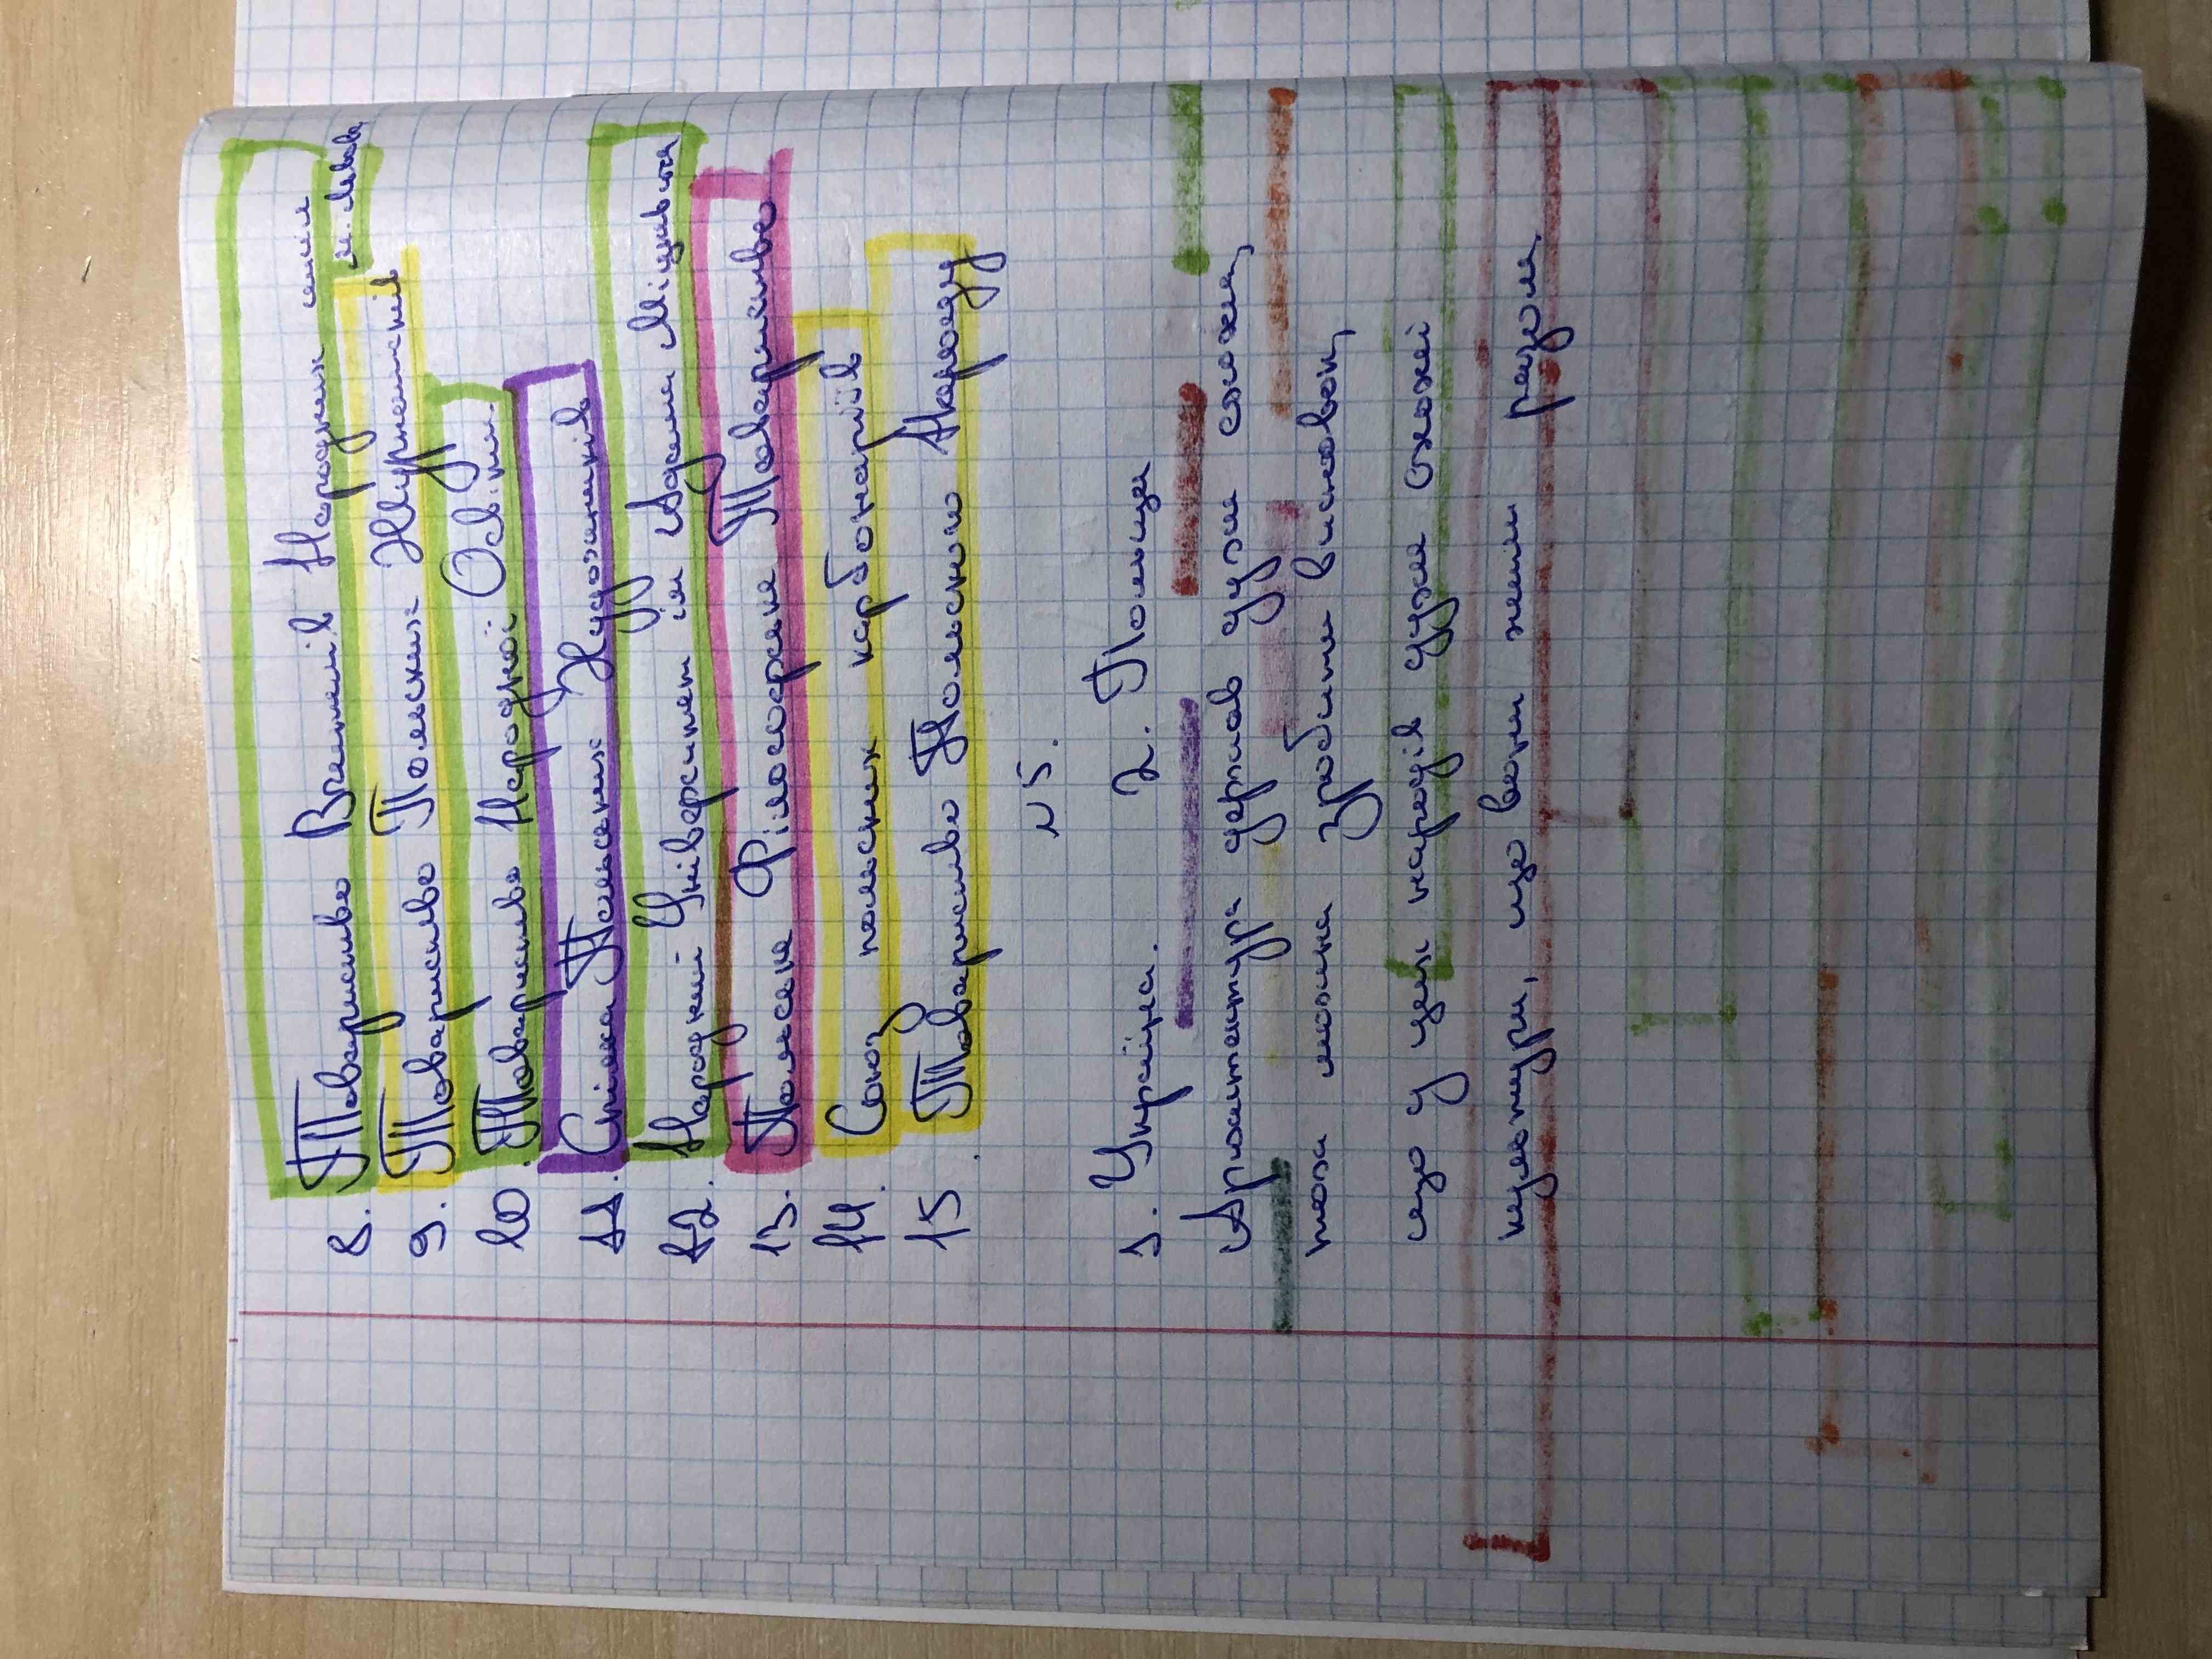 8. Товариство Вчителів Народних шкіл
м. Львів
9. Товариство Польських Журналістів
10. Товариство Народної Освіти
11. Спілка Польських Художників
12. Народний Університет ім Адама Міцкевича
13. Польське Філософське Товариство
14. Союз польських карбонаріїв
15. Товариство Польського Народу
№5.
1. Україна. 2. Польща
Архитектура держав дуже схожа,
тож можна зробити висновок,
що у цих народів дуже схожі
культури, що вони жили разом.